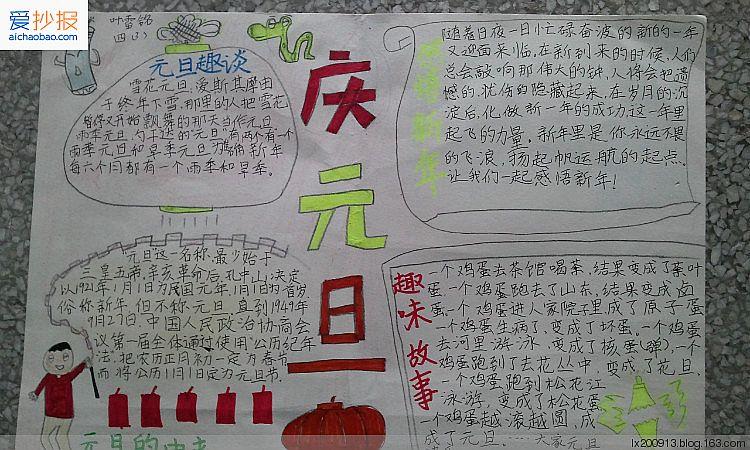 爱抄报
aichaobao.com
叶雪铭
庆元旦
元旦趣谈
雪花元旦,爱斯基摩由
于终年下雪,那里的人把雪花
暂停又开始飘舞的那天当作元旦
雨季元旦,乌干达的"元旦"有两个有一个
雨季元旦和旱季元旦为确新年
每六个月都有一个雨季和旱季。
感悟新年
随着日夜一日忙碌奋波的新的一年
又迎面来临,在新到来的时候,人们
总会敲响那伟大的钟,人将会把遗
憾的,忧伤的隐藏起来,在岁月的沉
淀后,化做新一年的成功,这一年里
起飞的力量。新年里是你永远不畏
的飞浪,扬起帆运航的起点。
让我们一起感悟新年!
"元旦"这一名称,最少始于
三皇五帝,辛亥革命后,孔中山,决定
以1921年1月1日为民国元年,1月1日为首岁
俗称新年,但不称元旦,直到1949年
9月27日,中国人民政治协商会
议第一届全体通过使用"公历纪年
法,把农历正月初一定为春节
而将公历1月1日定为元旦节.
元旦的由来
趣味故事
一个鸡蛋去茶馆喝茶,结果变成了茶叶
蛋,一个鸡蛋跑去了山东,结果变成卤
蛋,一个鸡蛋进人家院子里成了原子蛋
一个鸡蛋生病了,变成了坏蛋.一个鸡蛋
去河里游泳.变成了核蛋(弹),一个
鸡蛋跑到了去花丛中,变成了花旦、
一个鸡蛋跑到松花江
泳游,变成了松花蛋
一个鸡蛋越滚越圆,成
成了元旦、……大家元旦
lx200913.blog.163.com